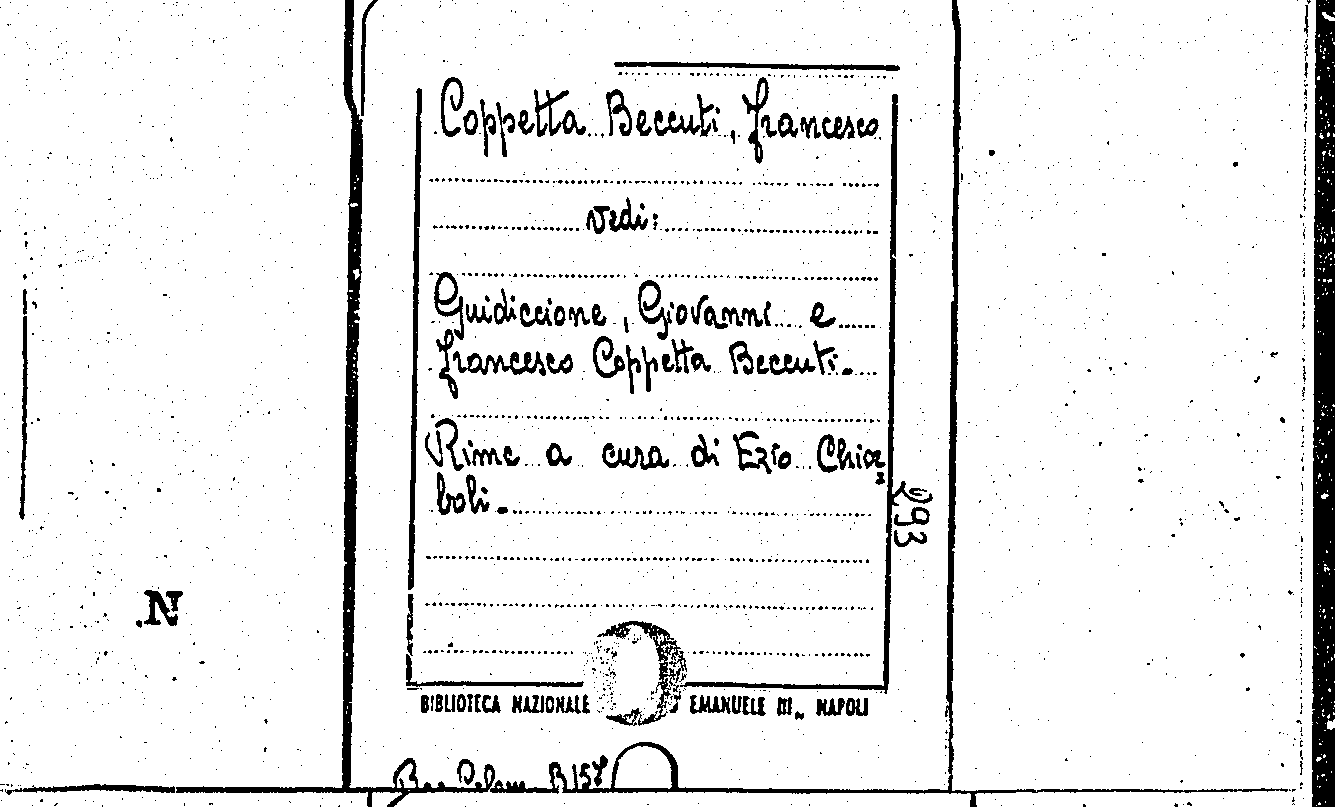 Coppetta Beccuti, Francesco
vedi:
Guidiccione, Giovanni e
Francesco Coppetta Beccuti.
Rime a cura di Ezio Chiar=
boli.
293
N.
BIBLIOTECA NAZIONALE EMANUELE III„ NAPOLI
B 157